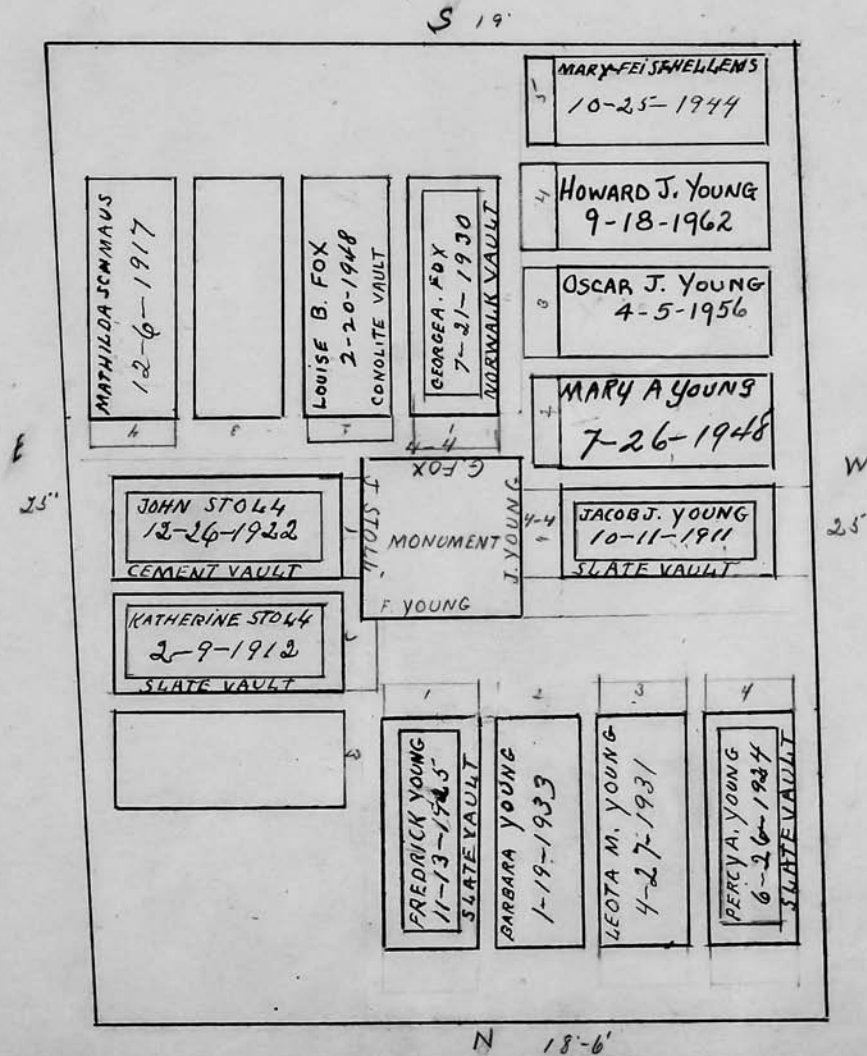 S 19'
5
MARY FEIST HELLEMS
10-25-1944
4
HOWARD J. YOUNG
9-18-1962
3
OSCAR J. YOUNG
4-5-1956
2
MARY A YOUNG
7-26-1948
MATHILDA SCHMAUS
12-6-1917
4
3
LOUISE B. FOX
2-20-1948
CONOLITE VAULT
2
GEORGE A. FOX
7-21-1930
NORWALK VAULT
1
E
25'
W
25'
JOHN STOLL
12-26-1922
CEMENT VAULT
1
4-4
G. FOX
J STOLL
MONUMENT
J. YOUNG
F. YOUNG
4-4
1
JACOB J. YOUNG
10-11-1911
SLATE VAULT
KATHERINE STOLL
2-9-1912
SLATE VAULT
2
3
1
FREDRICK YOUNG
11-13-1925
SLATE VAULT
2
BARBARA YOUNG
1-19-1933
3
LEOTA M. YOUNG
4-27-1931
4
PERCY A. YOUNG
6-26-1924
SLATE VAULT
N 18'-6'